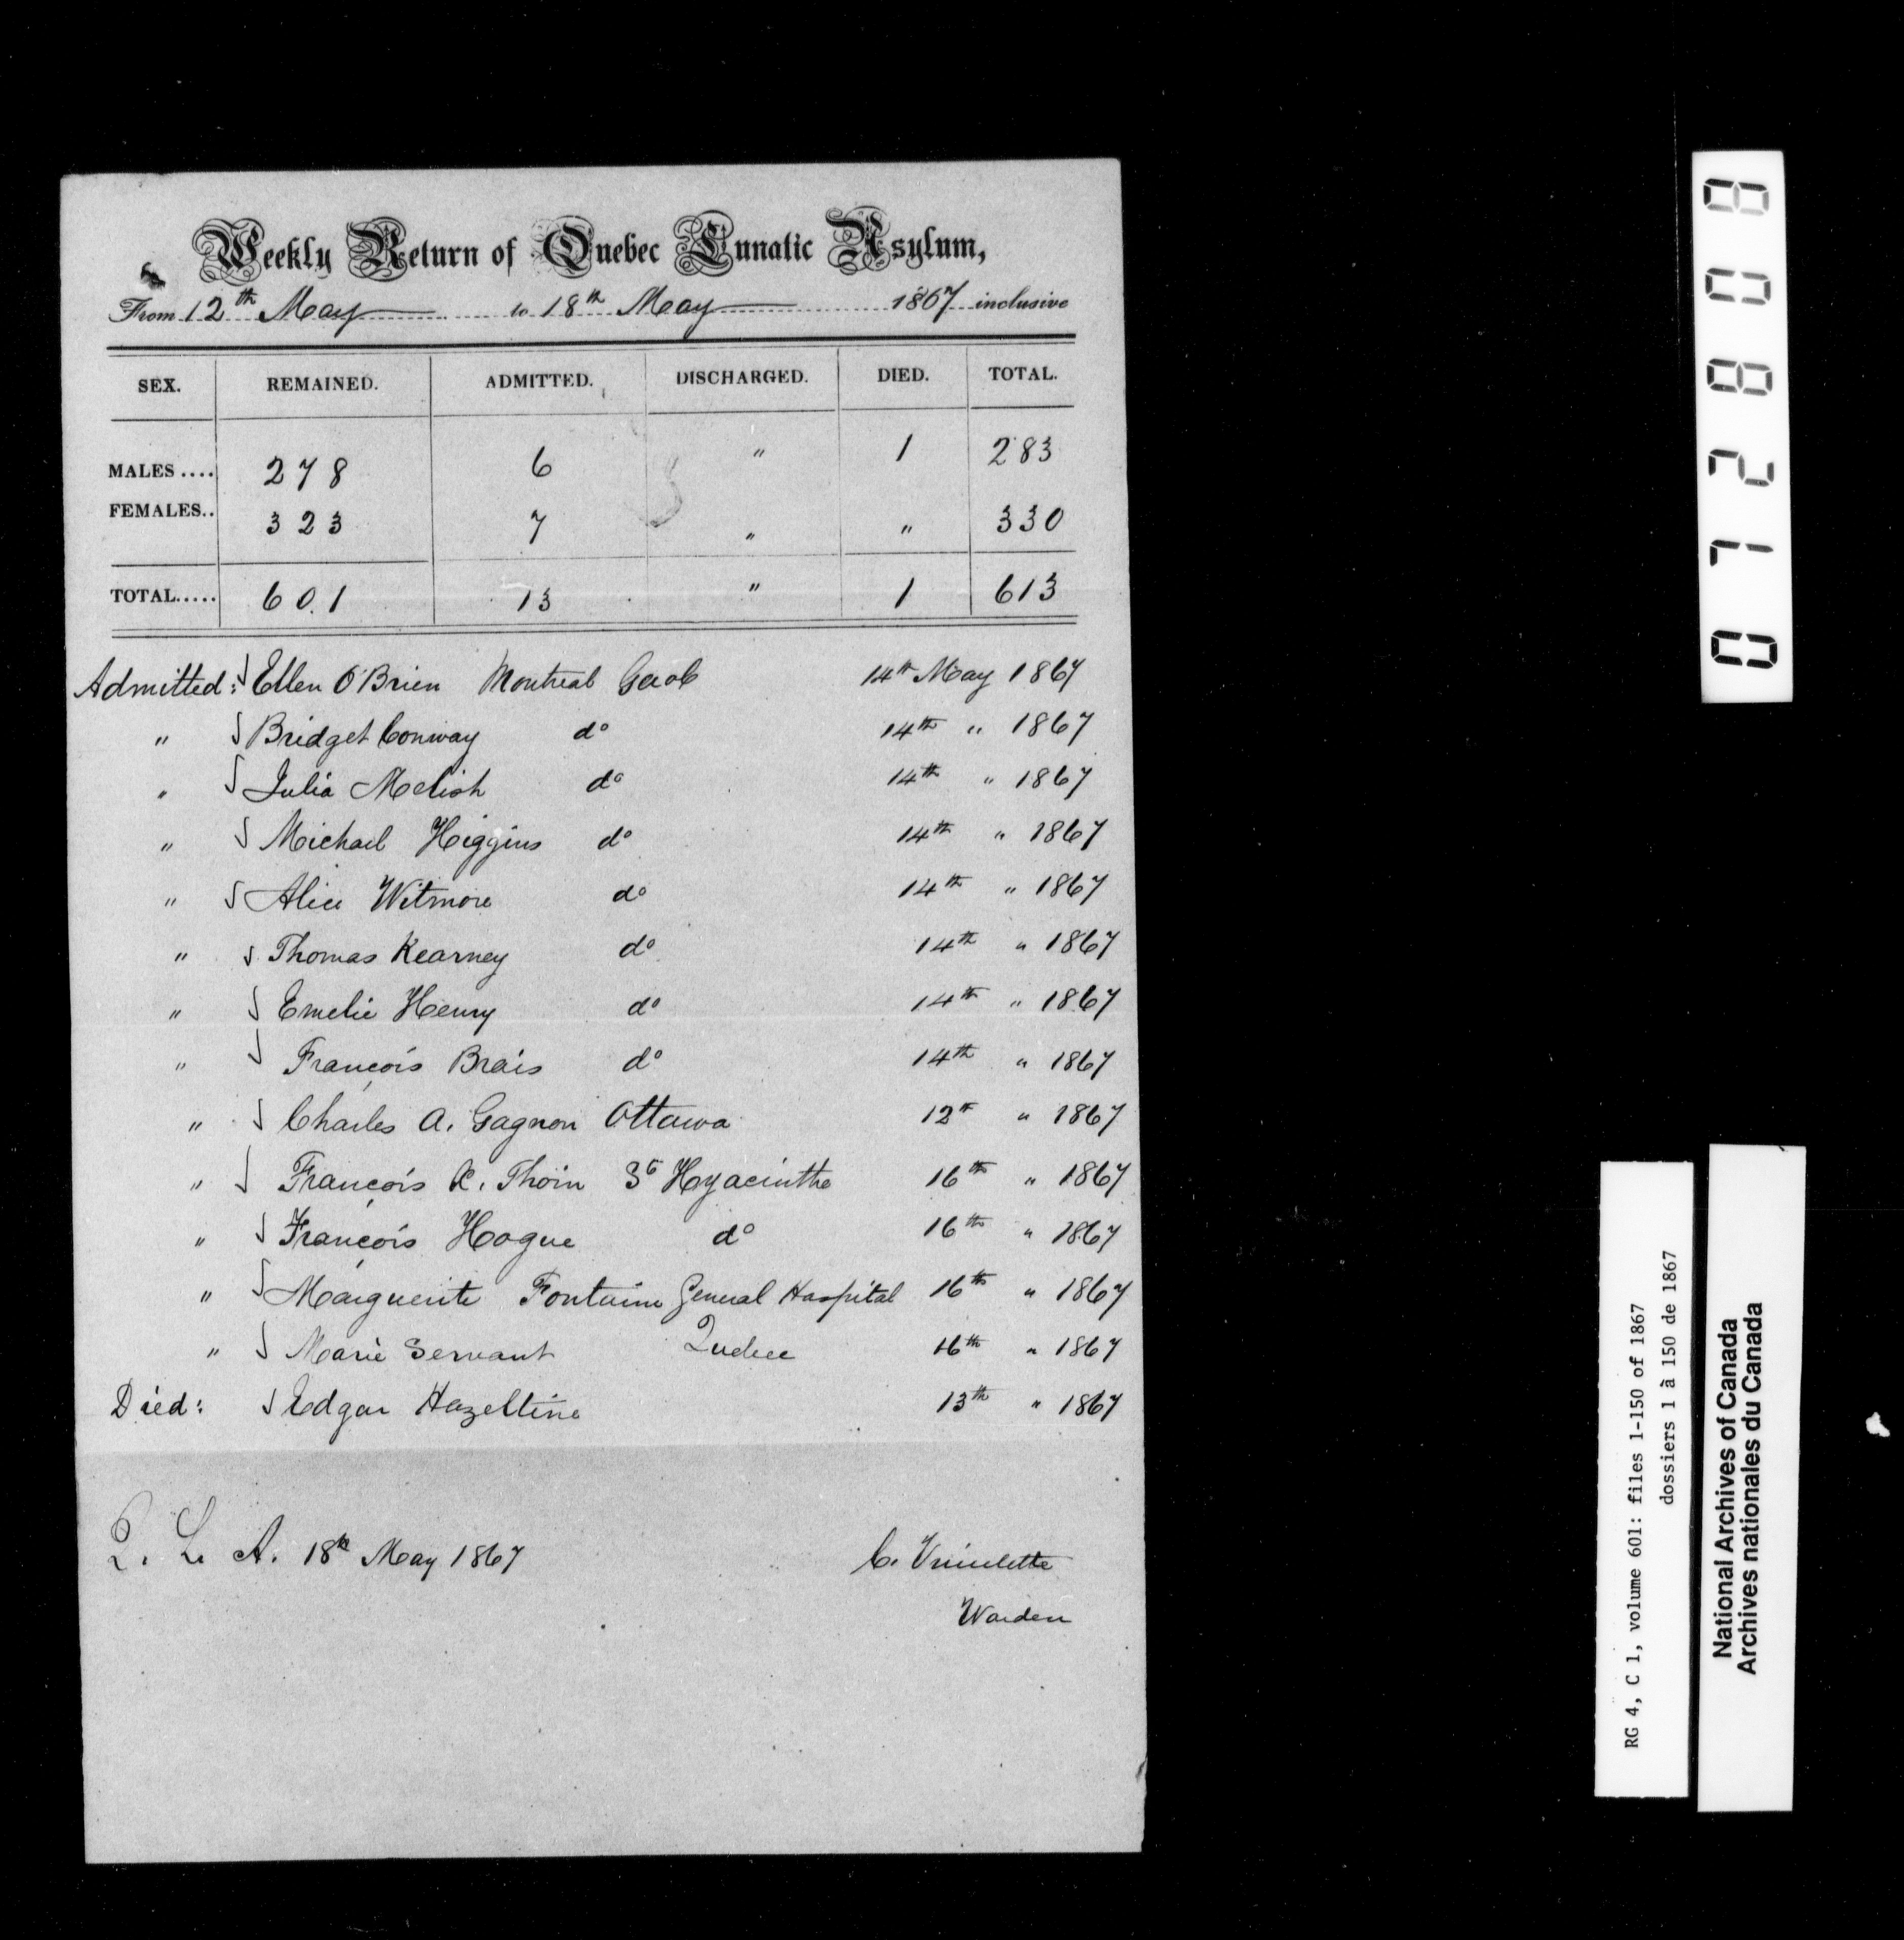 Weekly Return of Quebec Lunatic Asylum,
From 12th May to 18th May 1867 inclusive
SEX. REMAINED. ADMITTED. DISCHARGED. DIED. TOTAL.
MALES .... 278 6 " 1 283
FEMALES.. 323 7 " " 330
TOTAL..... 601 13 " 1 613
Admitted: Ellen O'Brien Montreal Gaol 14th May 1867
" Bridget Conway do 14th " 1867
" Julia Melish do 14th " 1867
" Michael Higgins do 14th " 1867
" Alice Witmore do 14th " 1867
" Thomas Kearney do 14th " 1867
" Emelie Henry do 14th " 1867
" François Brais do 14th " 1867
" Charles A. Gagnon Ottawa 12th " 1867
" François X. Thoin St Hyacinthe 16th " 1867
" François Hogue do 16th " 1867
" Marguerite Fontaine General Hospital 16th " 1867
" Marie Servant Quebec 16th " 1867
Died: Edgar Hazeltine 13th " 1867
Q. L. A. 18th May 1867
C. Vriulette
Warden
072808
RG 4, C 1, volume 601: files 1-150 of 1867
dossiers 1 à 150 de 1867
National Archives of Canada
Archives nationales du Canada